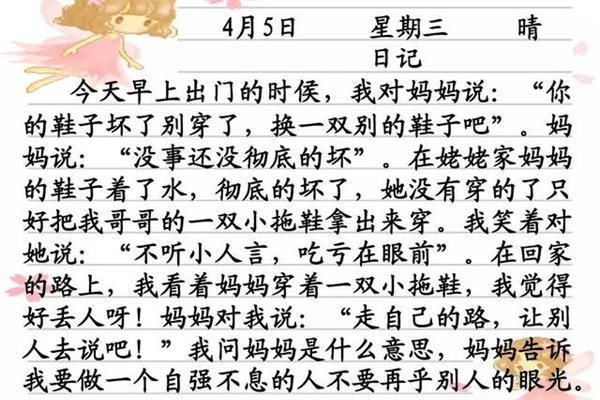 4月5日 星期三 晴
日记
今天早上出门的时侯，我对妈妈说：“你
的鞋子坏了别穿了，换一双别的鞋子吧”。妈
妈说：“没事还没彻底的坏”。在姥姥家妈妈
的鞋子着了水，彻底的坏了，她没有穿的了只
好把我哥哥的一双小拖鞋拿出来穿。我笑着对
她说：“不听小人言，吃亏在眼前”。在回家
的路上，我看着妈妈穿着一双小拖鞋，我觉得
好丢人呀！妈妈对我说：“走自己的路，让别
人去说吧！”我问妈妈是什么意思，妈妈告诉
我要做一个自强不息的人不要再乎别人的眼光。